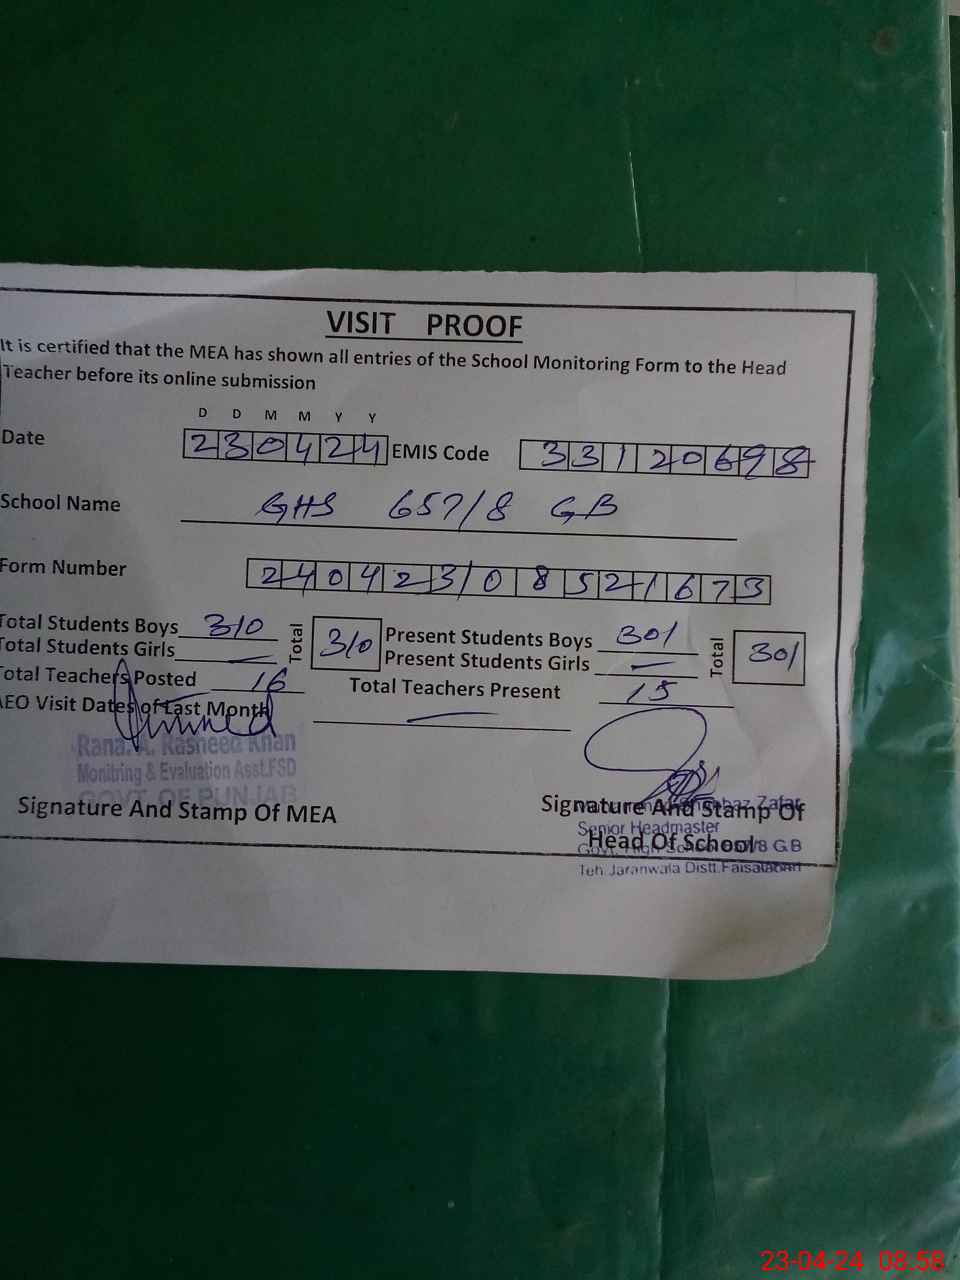 VISIT PROOF
It is certified that the MEA has shown all entries of the School Monitoring Form to the Head
Teacher before its online submission
D D M M Y Y
Date 230424 EMIS Code 33120698
School Name GHS 657/8 GB
Form Number 240423108521673
Total Students Boys 310 Total 310 Present Students Boys 301 Total 301
Total Students Girls — Present Students Girls —
Total Teachers Posted 16 Total Teachers Present 15
AEO Visit Dates of Last Month —
Rana. A. Rasheed Khan
Monitring & Evaluation Asst.FSD
GOVT. OF PUNJAB
Signature And Stamp Of MEA
Signature And Stamp Of
Head Of School
Shahbaz Zafar
Senior Headmaster
Govt. High School 657/8 G.B
Teh. Jaranwala Distt. Faisalabad
23-04-24 08:58